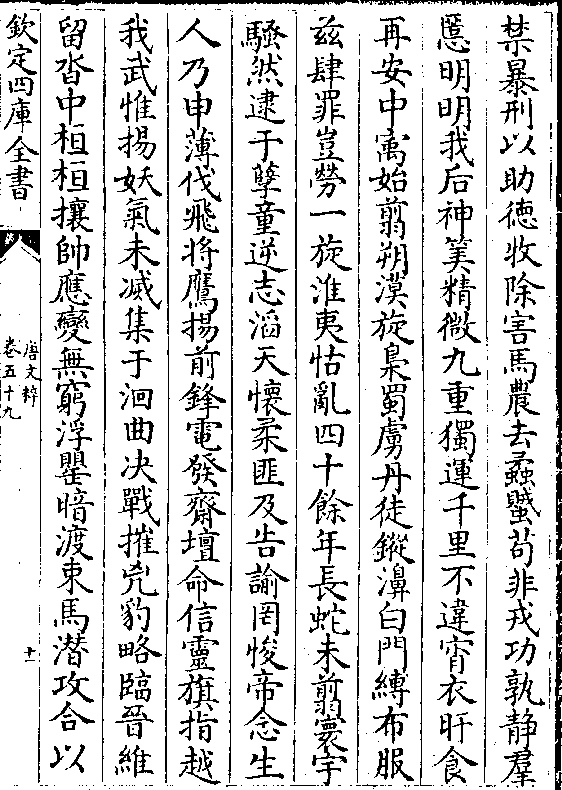 禁暴刑以助徳牧除害馬農去蟊蠈苟非戎功孰静羣
慝明明我后神筭精微九重獨運千里不違宵衣旰食
再安中㝢始翦朔漠旋梟蜀虜丹徒鏦濞白門縛布服
兹肆罪豈勞一旅淮夷怙亂四十餘年長蛇未翦寰宇
騷然逮于孽童逆志滔天懷柔匪及告諭罔悛帝念生
人乃申薄伐飛将鷹揚前鋒電發齋壇命信靈旗指越
我武惟揚妖氣未滅集于洄曲决戰摧兇豹略臨晉維
留沓中桓桓攘帥應變無窮浮罌暗渡束馬潛攻合以
欽定四庫全書
唐文粹
卷五十九
十一